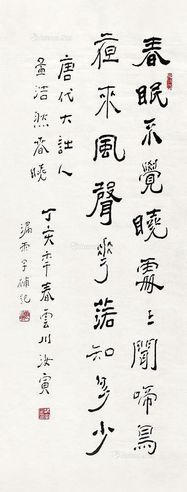 春眠不覺曉處〻聞啼鳥
夜來風聲花落知多少
唐代大詩人
孟浩然春曉
丁亥年春雲川汝寅
漏雨字補記